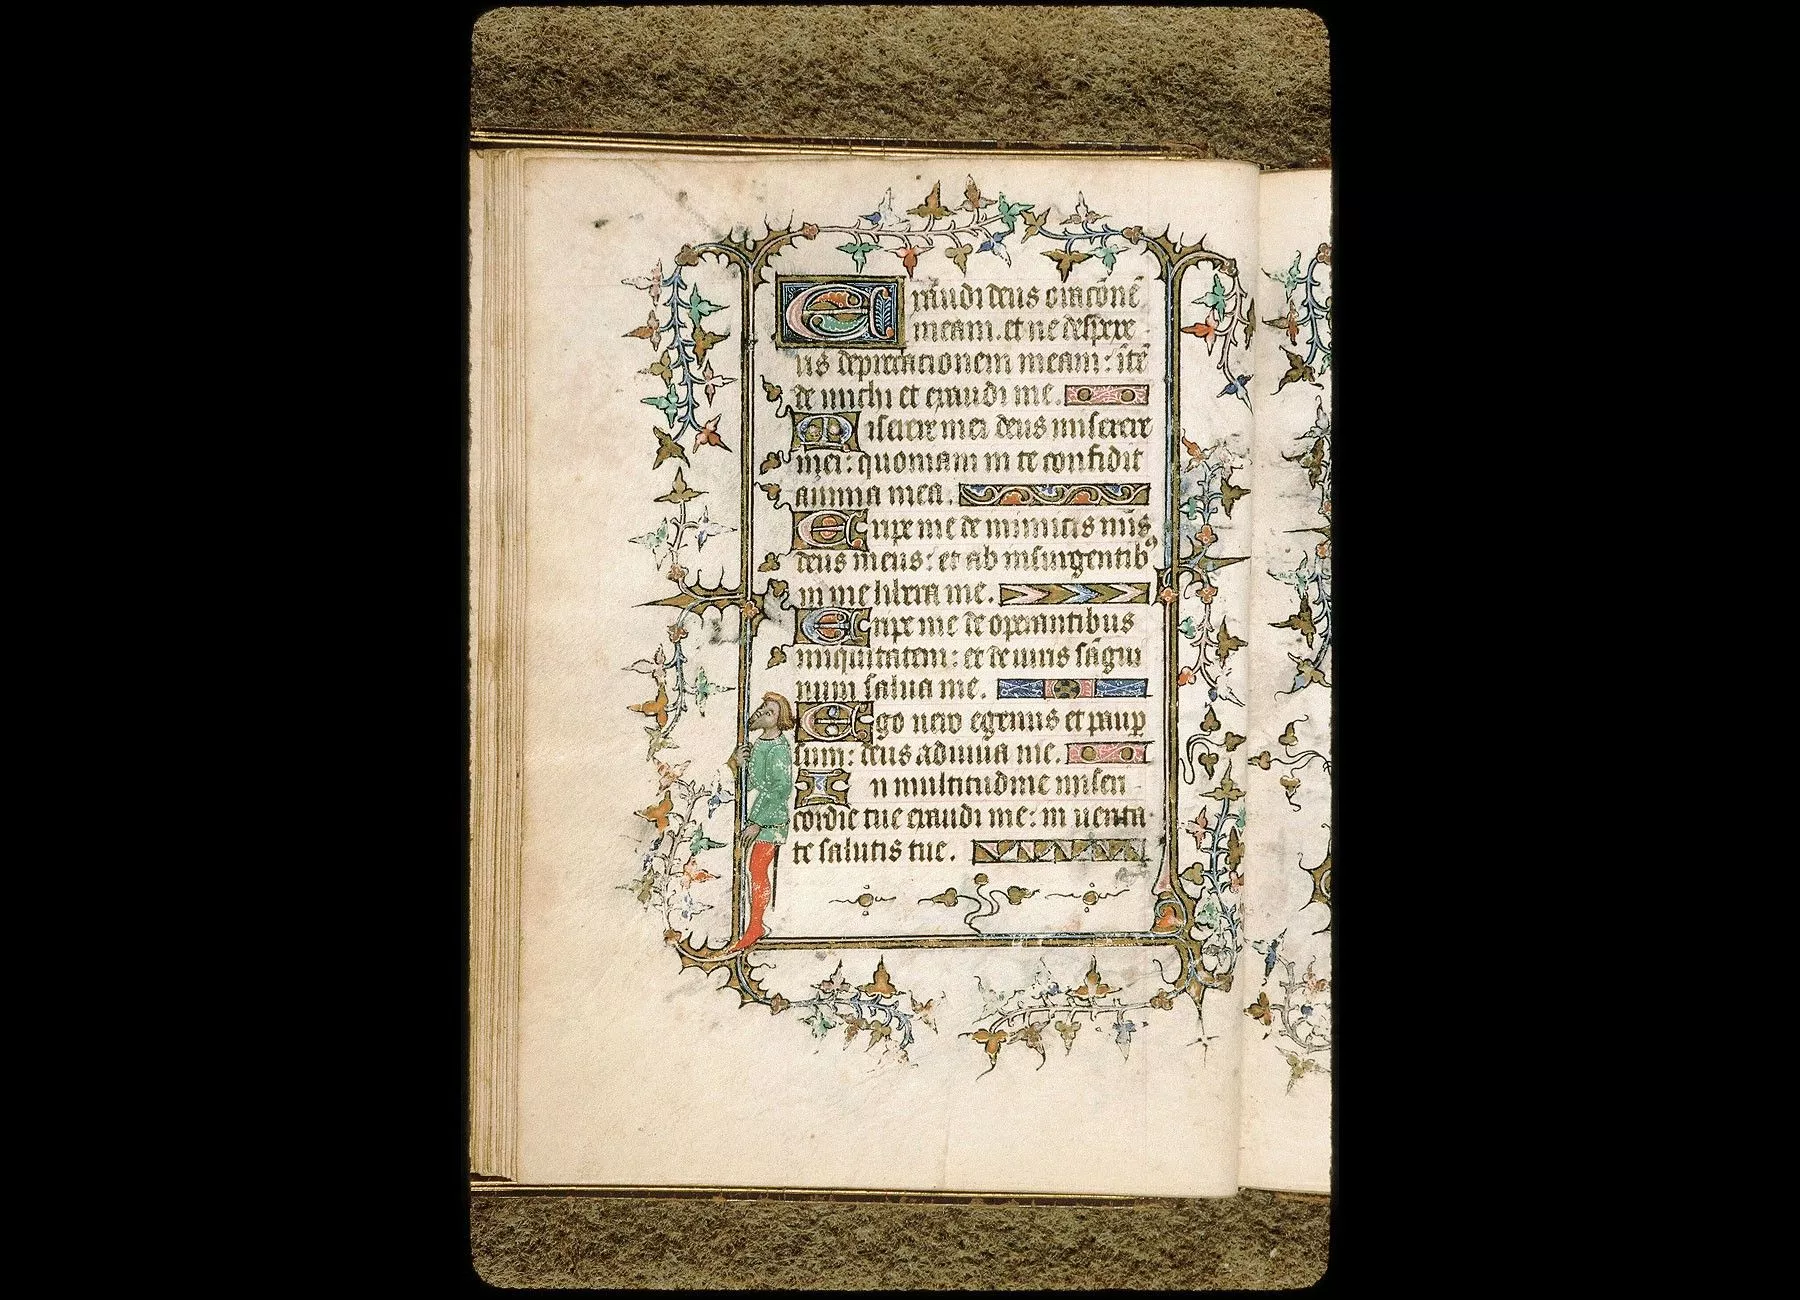 Exaudi deus orac̄onē
meam. et ne despexe
ris deprecationem meam: ītē
de michi et exaudi me.
Miserere mei deus miserere
mei: quoniam in te confidit
anima mea.
Eripe me de inimicis mīs
deus meus: et ab insurgentibꝰ
in me libera me.
Eripe me de operantibus
iniquitatem: et de uiris sāgui
num salua me.
Ego uero egenus et paup̱
sum: deus adiuua me.
In multitudine miseri
cordie tue exaudi me: in uerita
te salutis tue.